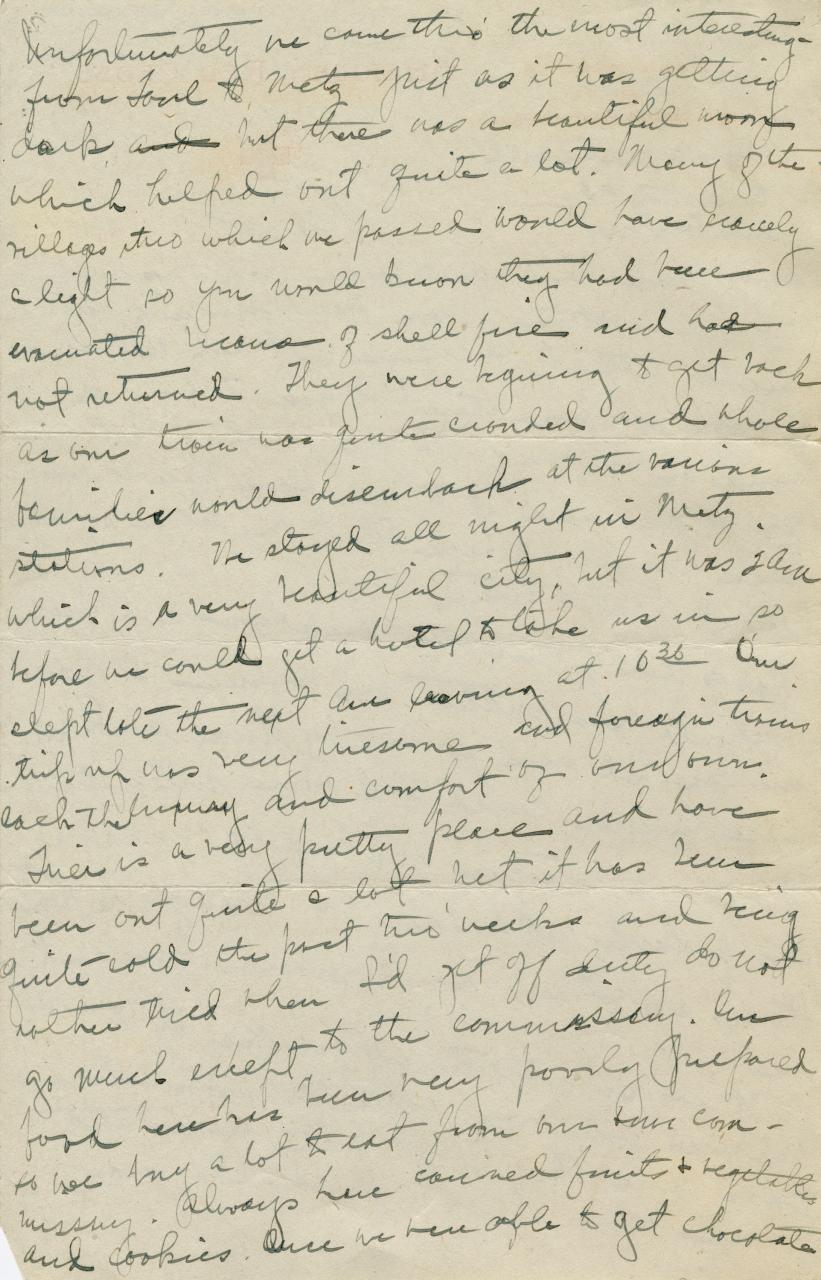 Unfortunately we came thro' the most interesting
from Toul to Metz just as it was getting
dark, and but there was a beautiful moon
which helped out quite a lot. Many of the
villages thro which we passed would have scarcely
a light so you would know they had been
evacuated because of shell fire and had
not returned. They were begining to get back
as our train was quite crowded and whole
families would disembark at the various
stations. We stayed all night in Metz.
which is a very beautiful city, but it was 2 am
before we could get a hotel to take us in so
slept late the next am leaving at 10 30 Our
trip up was very tiresome and foreign trains
lack the luxury and comfort of our own.
Trier is a very pretty place and have
been out quite a lot but it has been
quite cold the past two weeks and being
rather tired when I'd get off duty do not
go much except to the commissary. Our
food here has been very poorly prepared
so we buy a lot to eat from our own com-
missary. Always have canned fruits & vegetables
and cookies. Once we were able to get chocolate